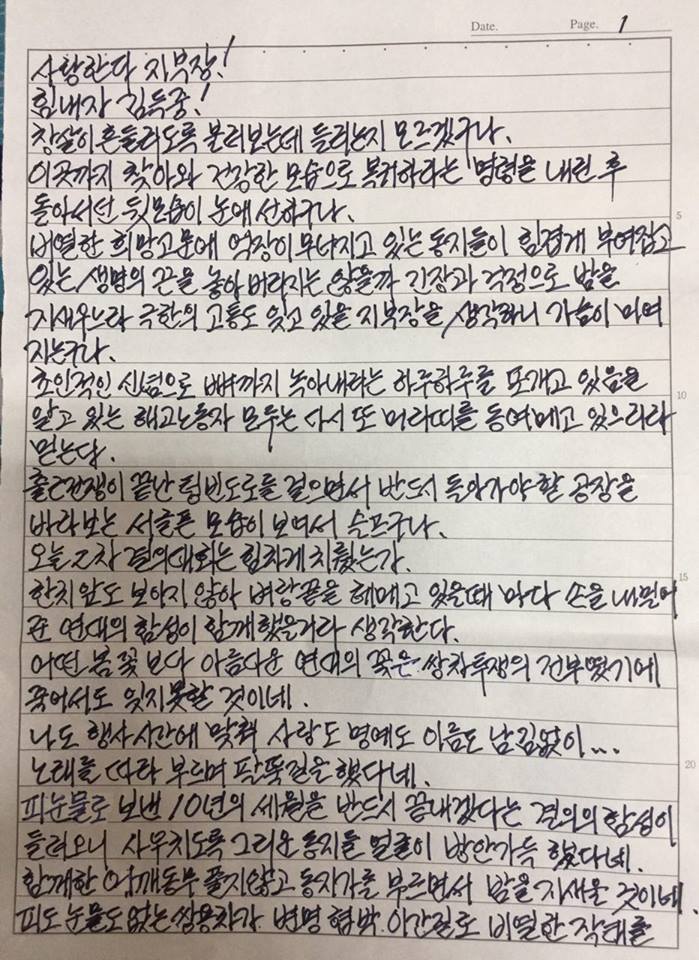 Date. Page. 1
사랑한다 지부장!
힘내자 김득중!
창살이 흔들리도록 불러보는데 들리는지 모르겠구나.
이곳까지 찾아와 건강한 모습으로 복귀하라는 명령을 내린 후
돌아서던 뒷모습이 눈에 선하구나.
비열한 희망고문에 억장이 무너지고 있는 동지들이 힘겹게 부여잡고
있는 생명의 끈을 놓아 버리지는 않을까 긴장과 걱정으로 밤을
5
지새우느라 극한의 고통도 잊고 있을 지부장을 생각하니 가슴이 미여
지는구나.
초인적인 신념으로 뼈까지 녹아내리는 하루하루를 쪼개고 있음을
10
알고 있는 해고노동자 모두는 다시 또 머리띠를 동여메고 있으리라
믿는다.
출근전쟁이 끝난 텅빈도로를 걸으면서 반드시 돌아가야 할 공장을
바라보는 서글픈 모습이 보여서 슬프구나.
오늘 2차 결의대회는 힘차게 치뤘는가.
한치 앞도 보이지 않아 벼랑끝을 헤메고 있을때 마다 손을 내밀어
15
준 연대의 함성이 함께 했을거라 생각한다.
어떤 봄 꽃 보다 아름다운 연대의 꽃은 쌍차투쟁의 전부였기에
죽어서도 잊지못할 것이네.
나도 행사시간에 맞춰 사랑도 명예도 이름도 남김없이...
노래를 따라 부르며 팔뚝질을 했다네.
20
피눈물로 보낸 10년의 세월을 반드시 끝내겠다는 결의의 함성이
들려오니 사무치도록 그리운 동지들 얼굴이 방안가득 했다네.
함께한 어깨동무 풀지않고 동지가를 부르면서 밤을 지새울 것이네.
피도 눈물도없는 쌍용차가 변명 협박 이간질로 비열한 작태를